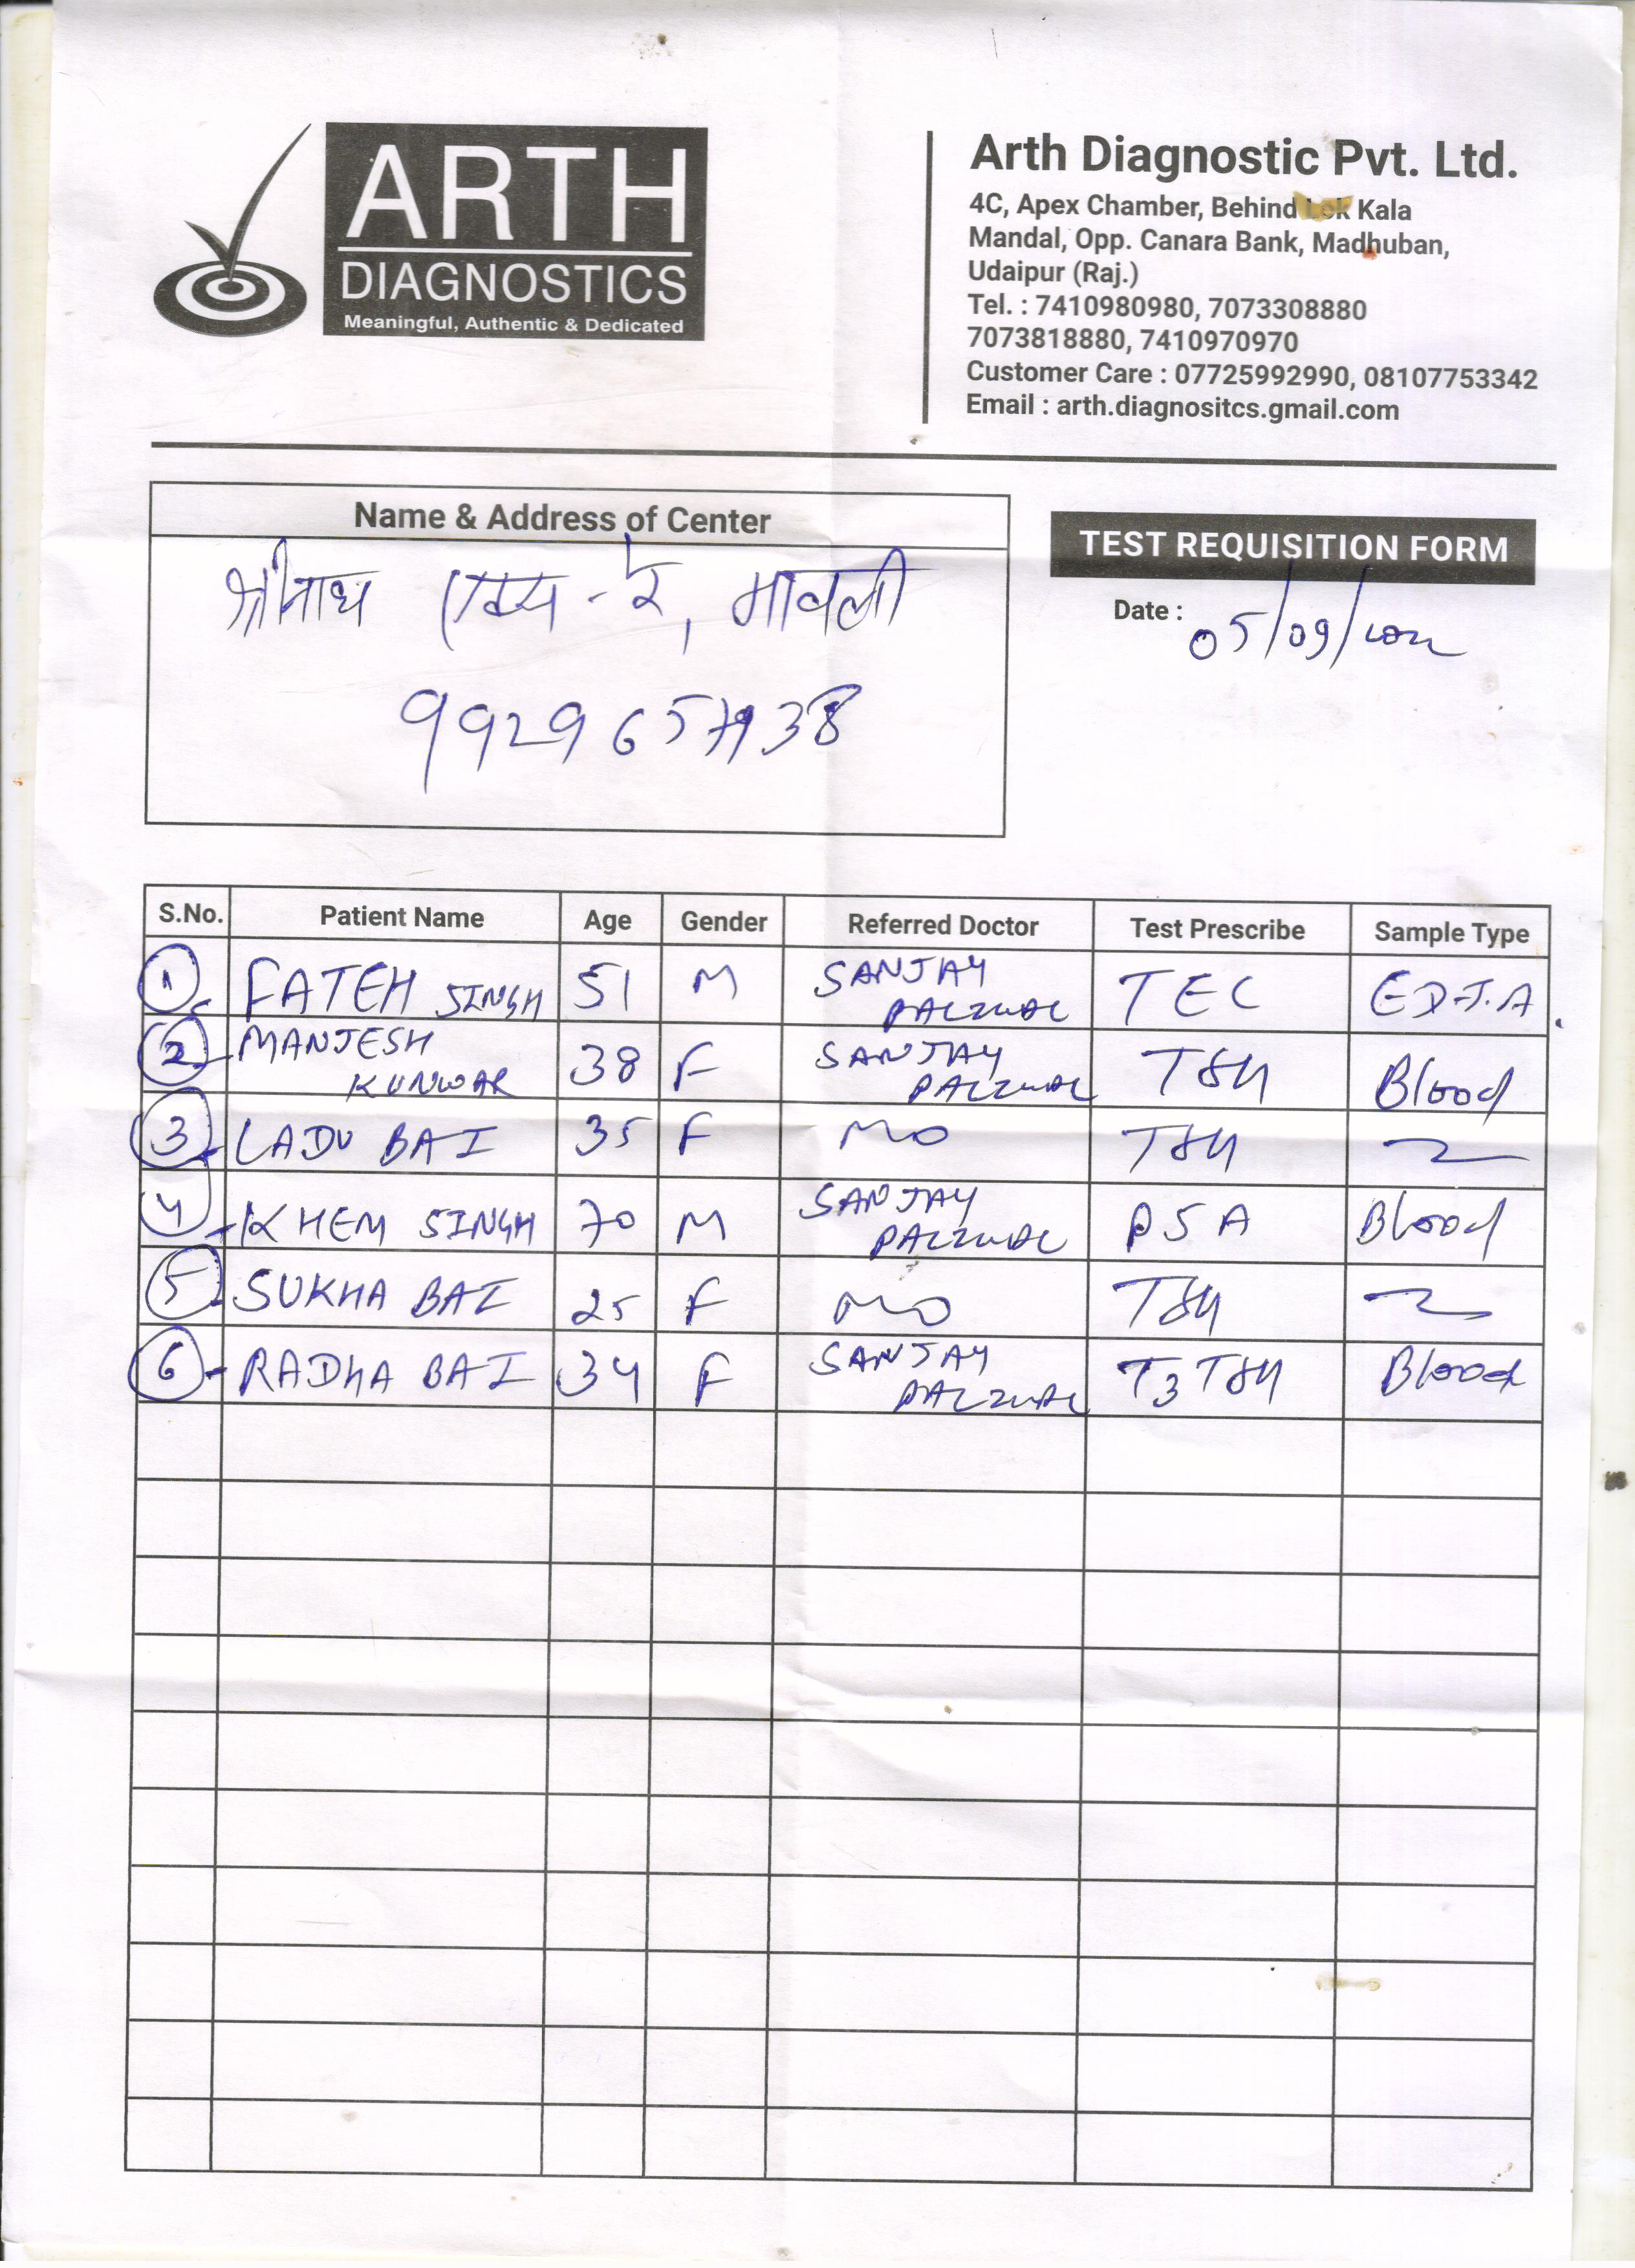 ARTH
DIAGNOSTICS
Meaningful, Authentic & Dedicated
Arth Diagnostic Pvt. Ltd.
4C, Apex Chamber, Behind Lok Kala
Mandal, Opp. Canara Bank, Madhuban,
Udaipur (Raj.)
Tel. : 7410980980, 7073308880
7073818880, 7410970970
Customer Care : 07725992990, 08107753342
Email : arth.diagnositcs.gmail.com
Name & Address of Center
श्रीनाथ एक्स-रे, मावली
TEST REQUISITION FORM
Date : 05/09/2022
S.No. Patient Name Age Gender Referred Doctor Test Prescribe Sample Type
1 FATEH SINGH 51 M SANJAY PALIWAL TEC E.D.T.A.
2 MANJESH KUNWAR 38 F SANJAY PALIWAL TSH Blood
3 LADU BAI 35 F MO TSH
4 KHEM SINGH 70 M SANJAY PALIWAL PSA Blood
5 SUKHA BAI 25 F MO TSH
6 RADHA BAI 34 F SANJAY PALIWAL T3 TSH Blood